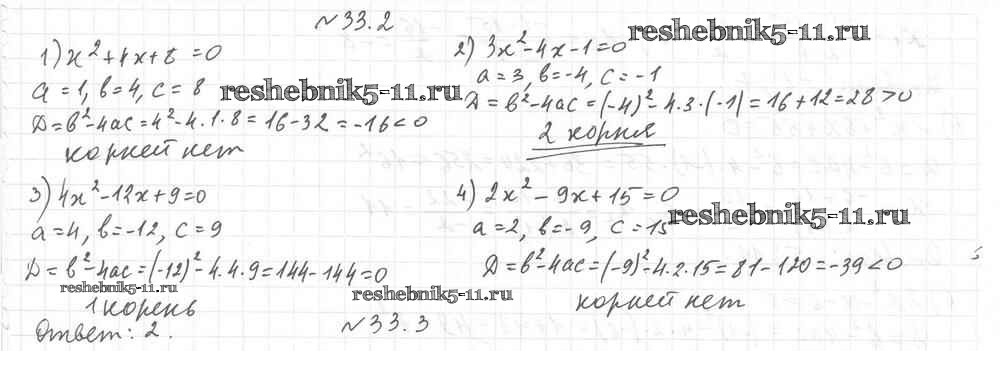 №33.2
1) x²+4x+8=0
a=1, b=4, c=8
D=b²-4ac=4²-4·1·8=16-32=-16<0
корней нет
2) 3x²-4x-1=0
a=3, b=-4, c=-1
D=b²-4ac=(-4)²-4·3·(-1)=16+12=28>0
2 корня
3) 4x²-12x+9=0
a=4, b=-12, c=9
D=b²-4ac=(-12)²-4·4·9=144-144=0
1 корень
4) 2x²-9x+15=0
a=2, b=-9, c=15
D=b²-4ac=(-9)²-4·2·15=81-120=-39<0
корней нет
Ответ: 2.
№33.3
reshebnik5-11.ru
reshebnik5-11.ru
reshebnik5-11.ru
reshebnik5-11.ru
reshebnik5-11.ru